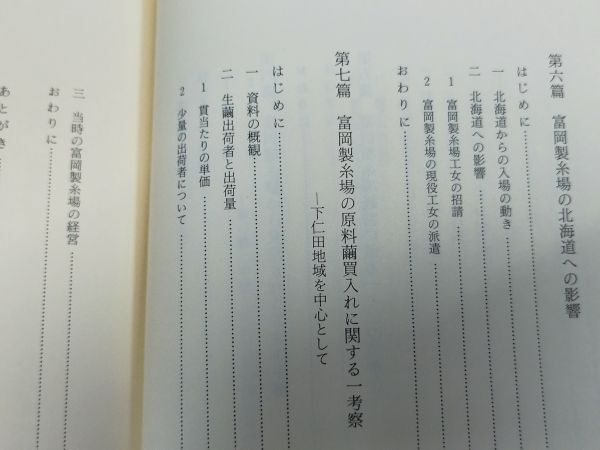 第六篇　富岡製糸場の北海道への影響
はじめに
一　北海道からの入場の動き
二　北海道への影響
1　富岡製糸場工女の招請
2　富岡製糸場の現役工女の派遣
おわりに
第七篇　富岡製糸場の原料繭買入れに関する一考察
―下仁田地域を中心として
はじめに
一　資料の概観
二　生繭出荷者と出荷量
1　貫当たりの単価
2　少量の出荷者について
三　当時の富岡製糸場の経営
おわりに
あとがき